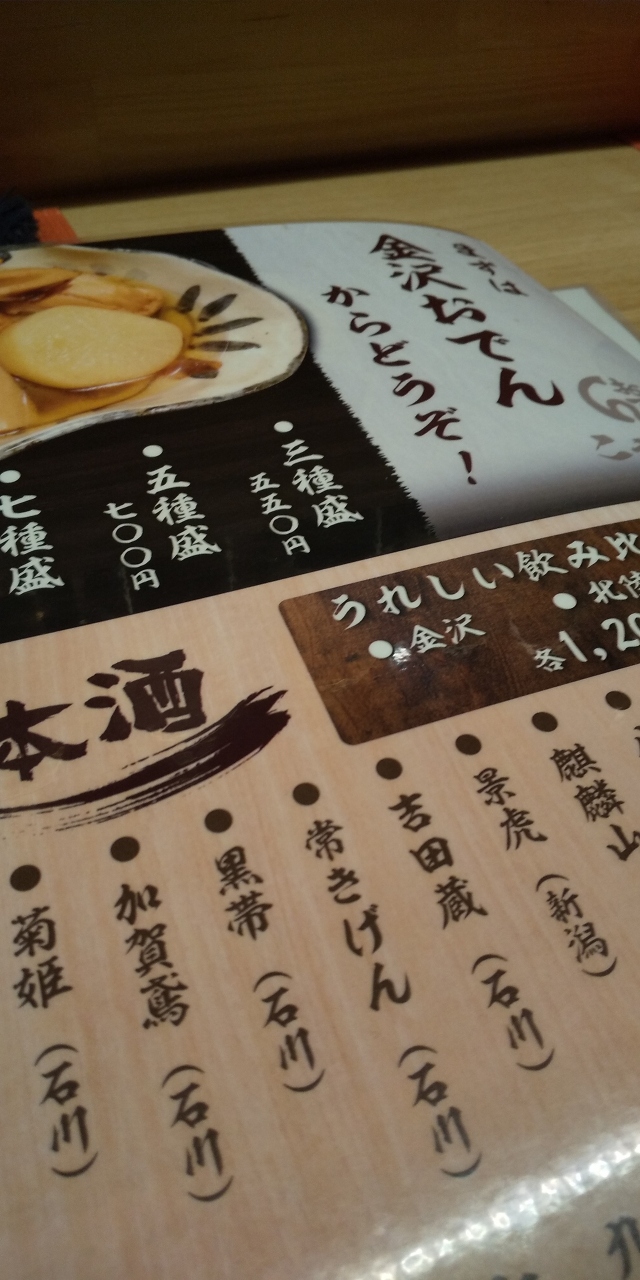 まずは
金沢おでん
からどうぞ！
●三種盛
五五〇円
●五種盛
七〇〇円
●七種盛
うれしい飲み比
●金沢
●北陸
各1,20
本酒
麒麟山
●景虎（新潟）
●吉田蔵（石川）
●常きげん（石川）
●黒帯（石川）
●加賀鳶（石川）
●菊姫（石川）